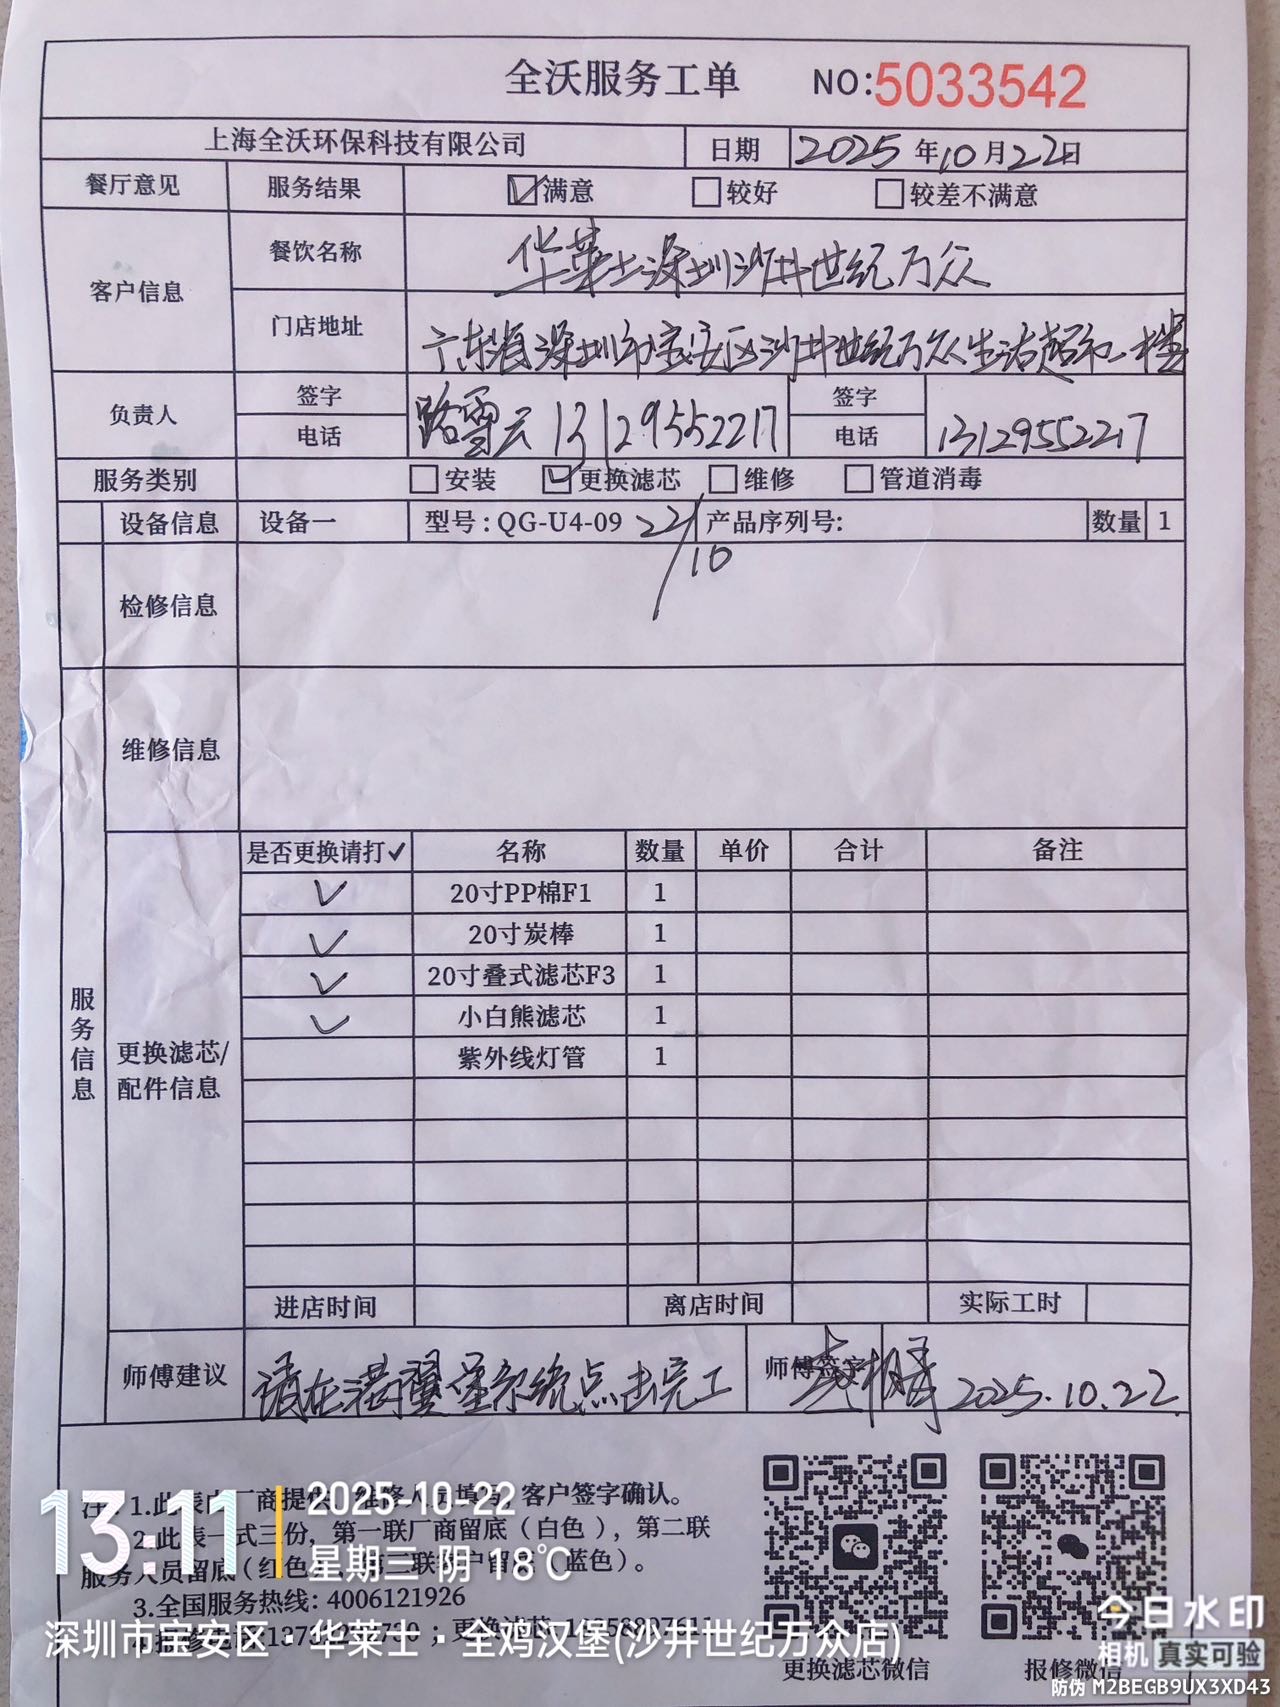 全沃服务工单 NO:5033542
上海全沃环保科技有限公司 日期 2025年10月22日
餐厅意见 服务结果 ☑满意 □较好 □较差不满意
客户信息 餐饮名称 华莱士深圳沙井世纪万众
门店地址 广东省深圳市宝安区沙井世纪万众生活超市一楼
负责人 签字 电话 路雪云 13129552217 签字 电话 13129552217
服务类别 □安装 ☑更换滤芯 □维修 □管道消毒
设备信息 设备一 型号:QG-U4-09 22/10 产品序列号: 数量 1
检修信息
维修信息
服务信息
更换滤芯/配件信息
是否更换请打✓ 名称 数量 单价 合计 备注
✓ 20寸PP棉F1 1
✓ 20寸炭棒 1
✓ 20寸叠式滤芯F3 1
✓ 小白熊滤芯 1
紫外线灯管 1
进店时间 离店时间 实际工时
师傅建议 请在满翼星系统点击完工 师傅签字 2025.10.22
注:1.此表由厂商提供 维修人员填写,客户签字确认。
2.此表一式三份,第一联厂商留底(白色),第二联
服务人员留底(红色 联客户留底(蓝色)。
3.全国服务热线:4006121926
更换滤芯微信 报修微信
13:11 2025-10-22
星期三 阴 18℃
深圳市宝安区·华莱士·全鸡汉堡(沙井世纪万众店)
今日水印
相机 真实可验
防伪 M2BEGB9UX3XD43